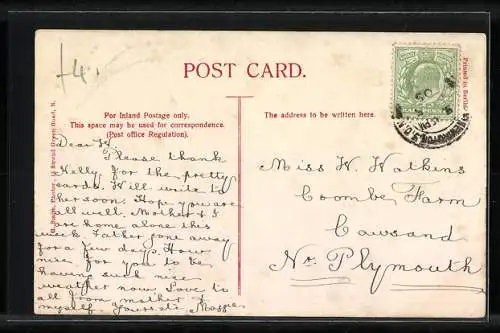 £4.
POST CARD.
For Inland Postage only.
This space may be used for correspondence.
(Post office Regulation).
The address to be written here.
Dear W.
Please thank
Nelly for the pretty
cards. Will write to
her soon. Hope you are
all well. Mother & I
are home alone this
week. Father gone away
for a few days. How
nice for you to be
having such nice
weather now. Love to
all from mother &
myself. yours etc
Miss W. Watkins
Coombe Farm
Cawsand
Nr. Plymouth
Printed in Berlin